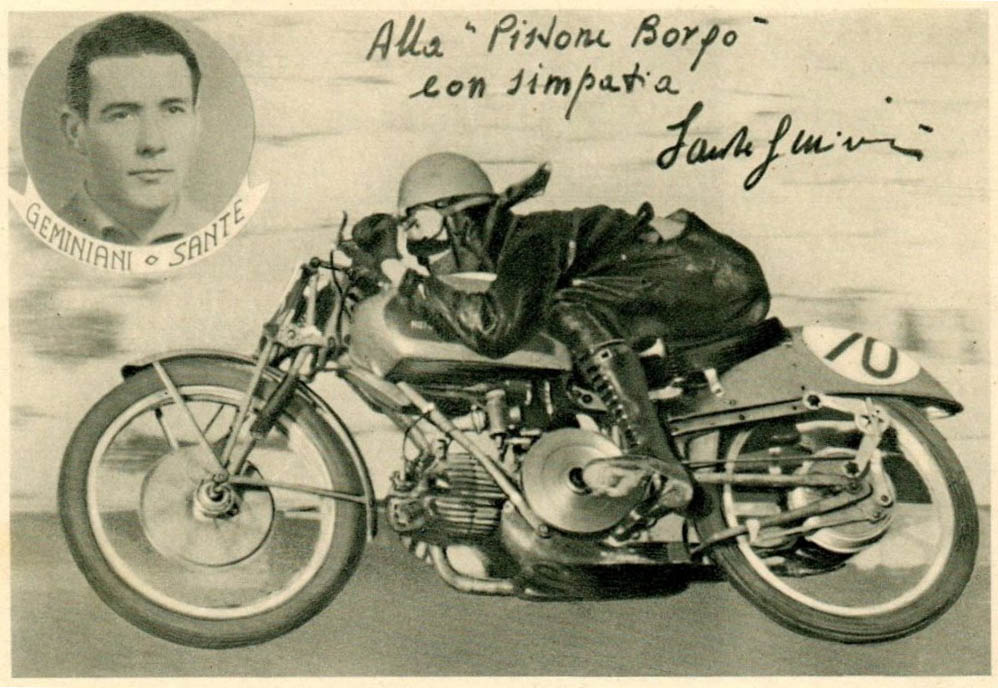 Alla "Pistone Borgo"
con simpatia
Sante Geminiani
GEMINIANI o SANTE
70